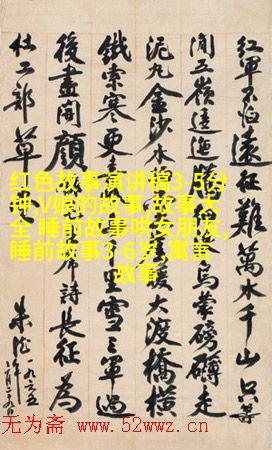 紅軍不怕遠征難萬水千山只等
閒五嶺逶迤烏蒙磅礴走
泥丸金沙水暖大渡橋橫
鐵索寒更里雪三軍過
後盡開顏席詩長征為
杜工部草
朱德
一九六五
红色故事演讲稿3-5分
钟,V娘的故事,故事大
全 睡前故事哄女朋友,
睡前故事3-6岁,寓言
故事
无为斋 www.52wwz.cn